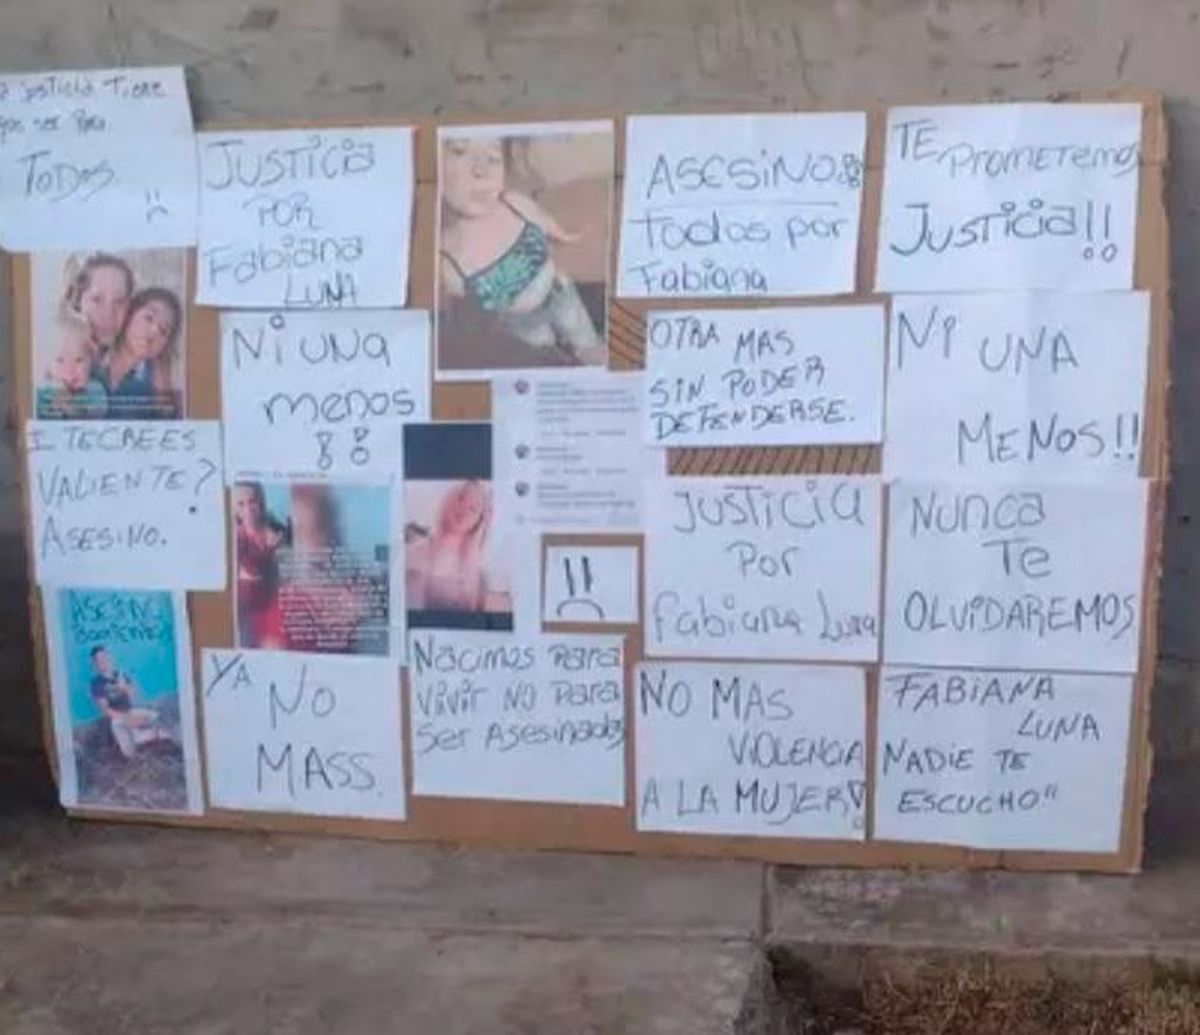 Justicia Tiene
que ser Para
Todos
Justicia
POR
Fabiana
LUNA
ASESiNO!!
Todos por
Fabiana
TE Prometemos
Justicia!!
Ni UNa
menos
!!
OTRA MAS
SIN PODER
DEFENDERSE.
Ni UNA
MENOS!!
I TECREES
VALIENTE?
ASESINO.
JUSTICIA
Por
Fabiana Luna
NUNCA
Te
OLVIDAREMOS
ASESINO
YA NO
MASS.
Nacimos Para
Vivir No Para
Ser Asesinadas
NO MAS
VIOLENCIA
A LA MUJER!
FABIANA
LUNA
NADIE TE
ESCUCHO"